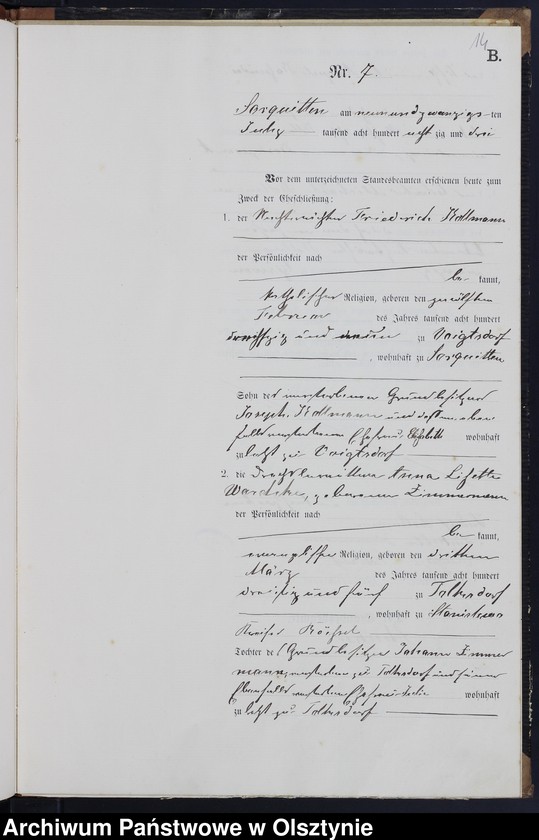 14
B.
Nr. 7.
Sorquitten am neunundzwanzigs ten
July tausend acht hundert acht zig und drei
Vor dem unterzeichneten Standesbeamten erschienen heute zum
Zweck der Eheschließung:
1. der Friederich Kollmann
der Persönlichkeit nach
be kannt,
katholischer Religion, geboren den zwölften
Februar des Jahres tausend acht hundert
dreißzig und neun zu Voigtsdorf
, wohnhaft zu Sorquitten
Sohn des verstorbenen Grundbesitzer
Joseph Kollmann und dessen eben
falls verstorbenen Ehefrau Elisabeth wohnhaft
zuletzt zu Voigtsdorf
2. die Anna Lisette
geborene Zimmermann
der Persönlichkeit nach
be kannt,
evangelischer Religion, geboren den dritten
März des Jahres tausend acht hundert
dreißig und fünf zu Tolksdorf
, wohnhaft zu
Kreises Rössel
Tochter des Grundbesitzer Johann Zimmer
mann verstorben zu Tolksdorf und seiner
ebenfalls verstorbenen Ehefrau wohnhaft
zu letzt zu Tolksdorf
Archiwum Państwowe w Olsztynie